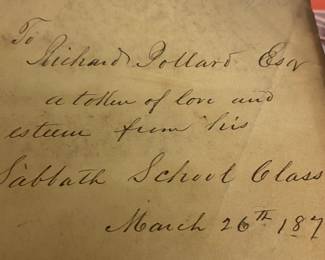 To
Richard Pollard Esqr
a token of love and
esteem from his
Sabbath School Class
March 26th 187